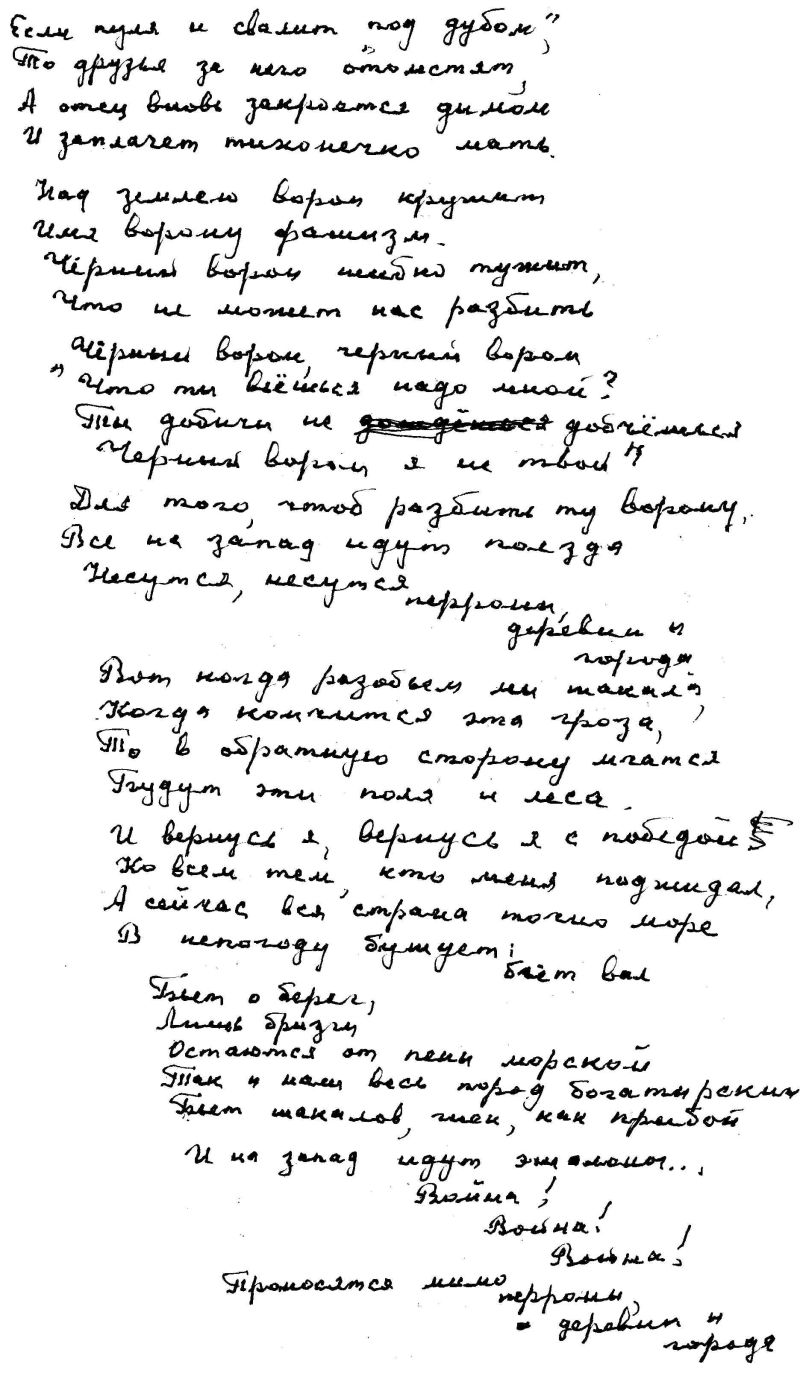 Если пуля и свалит под дубом",
То друзья за него "отомстят,
А отец вновь закроется дымом
И заплачет тихонечко мать.
Над землею ворон кружит
Имя ворону фашизм.
Чёрный ворон шибко тужит,
Что не может нас разбить
Чёрный ворон, черный ворон
"Что ты вьёшься надо мной?
Ты добычи не дождёшься добчёшься
Черный ворон я не твой"
Для того, чтоб разбить ту ворону,
Все на запад идут поезда
Несутся, несутся
перроны,
деревни и
города
Вот когда разобьем мы шакала,
Когда кончится эта гроза,
То в обратную сторону мчатся
Будут эти поля и леса.
И вернусь я, вернусь я с победой
Ко всем тем, кто меня поджидал,
А сейчас вся страна точно море
В непогоду бушует:
бьёт вал
Бьет о берег,
Лишь бризги
Остаются от пены морской
Так и наш весь город богатырских
Бьет шакалов, гиен, как прибой
И на запад идут эшалоны...
Война!
Война!
Война!
Проносятся мимо
перроны,
деревни и
города